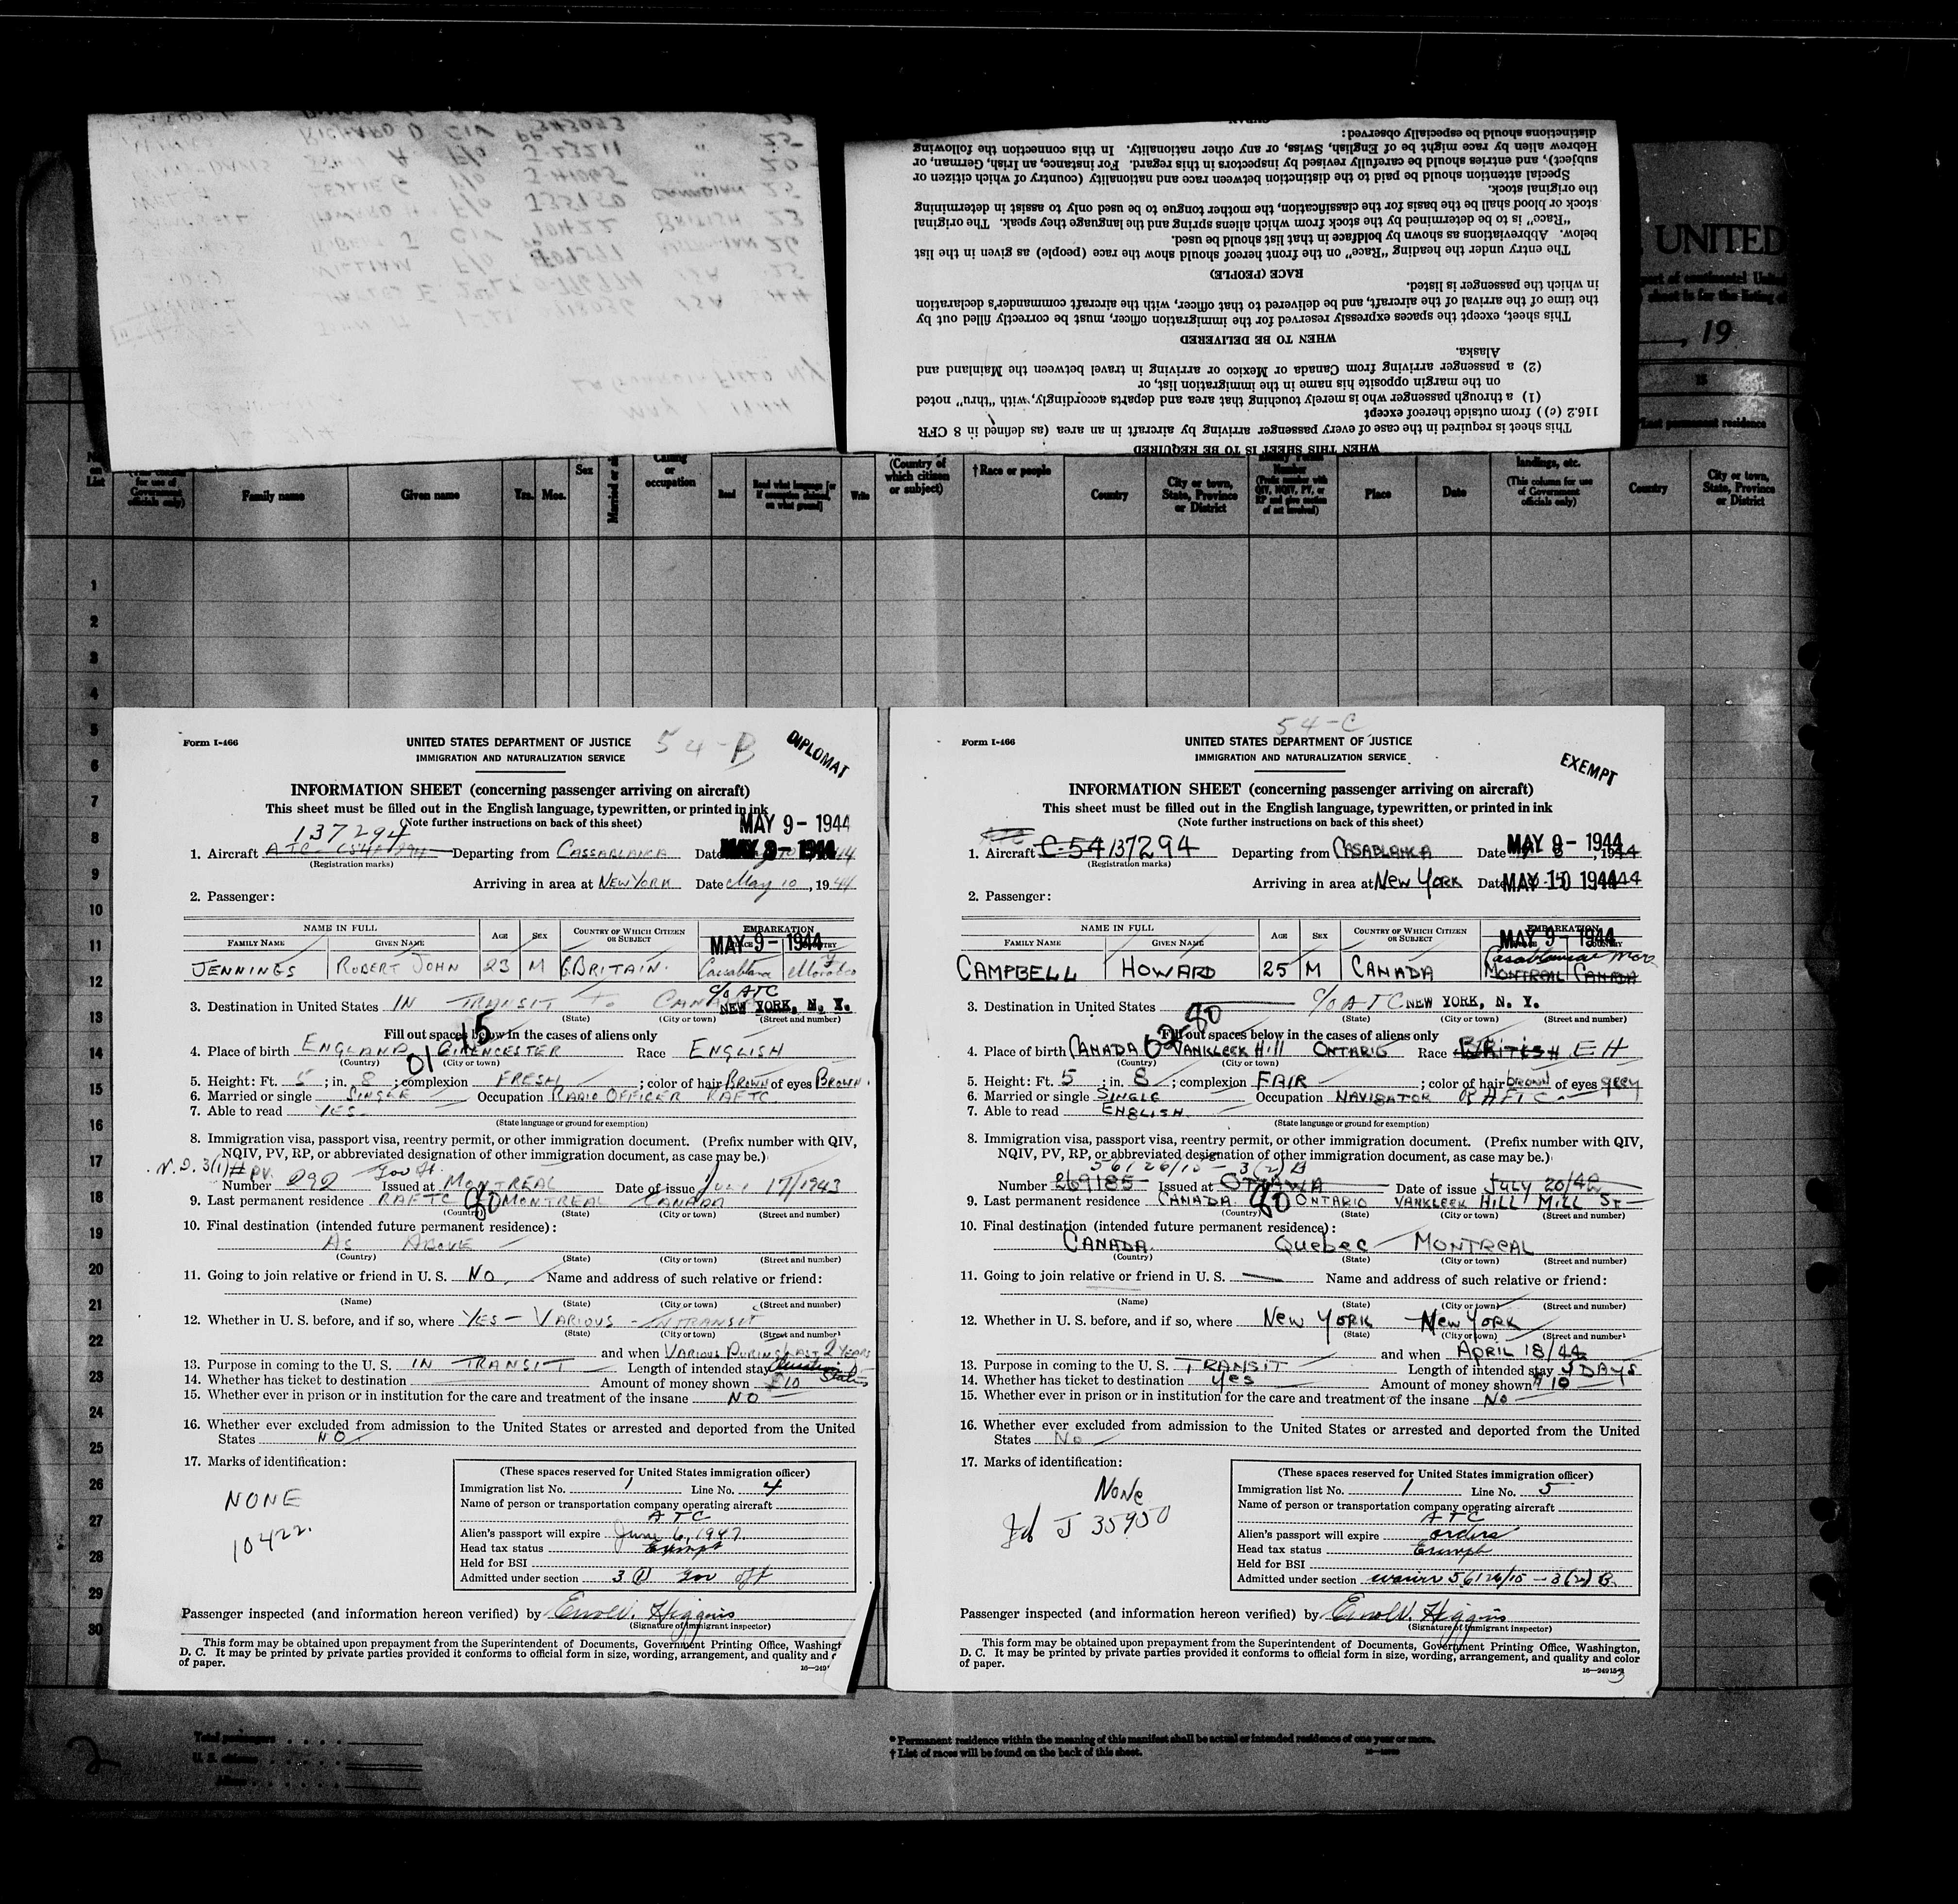 RICHARD D CIV
JOHN A F/O J-23211 " 20
LESLIE G F/O
HOWARD H. F/O J35950 CANADIAN 25
ROBERT J CIV 10422 BRITISH 23
WILLIAM F/O 26
CHARLES E. USA 25
USA 44
LA GUARDIA FIELD NY
MAY 1944
WHEN THIS SHEET IS TO BE REQUIRED
This sheet is required in the case of every passenger arriving by aircraft in an area (as defined in 8 CFR
116.2 (c)) from outside thereof except
(1) a through passenger who is merely touching that area and departs accordingly, with "thru" noted
on the margin opposite his name in the immigration list, or
(2) a passenger arriving from Canada or Mexico or arriving in travel between the Mainland and
Alaska.
WHEN TO BE DELIVERED
This sheet, except the spaces expressly reserved for the immigration officer, must be correctly filled out by
the time of the arrival of the aircraft, and be delivered to that officer, with the aircraft commander's declaration
in which the passenger is listed.
RACE (PEOPLE)
The entry under the heading "Race" on the front hereof should show the race (people) as given in the list
below. Abbreviations as shown by boldface in that list should be used.
"Race" is to be determined by the stock from which aliens spring and the language they speak. The original
stock or blood shall be the basis for the classification, the mother tongue to be used only to assist in determining
the original stock.
Special attention should be paid to the distinction between race and nationality (country of which citizen or
subject), and entries should be carefully revised by inspectors in this regard. For instance, an Irish, German, or
Hebrew alien by race might be of English, Swiss, or any other nationality. In this connection the following
distinctions should be especially observed:
CUBAN
UNITED
, 19
Last permanent residence
No. on List
Family name
Given name
Yrs. Mos.
Sex
Calling or occupation
Read
Read what language [or if exemption claimed, on what ground]
Write
(Country of which citizen or subject)
† Race or people
Country
City or town, State, Province or District
(Prefix number with QIV, NQIV, PV, or RP and give section of act involved)
Place
Date
landings, etc. (This column for use of Government officials only)
Country
City or town, State, Province or District
1
2
3
4
5
6
7
8
9
10
11
12
13
14
15
16
17
18
19
20
21
22
23
24
25
26
27
28
29
30
Form I-466
UNITED STATES DEPARTMENT OF JUSTICE
54-B
DIPLOMAT
IMMIGRATION AND NATURALIZATION SERVICE
INFORMATION SHEET (concerning passenger arriving on aircraft)
This sheet must be filled out in the English language, typewritten, or printed in ink
(Note further instructions on back of this sheet)
MAY 9 - 1944
137294
1. Aircraft Departing from CASSABLANCA Date MAY 9 - 1944
(Registration marks)
Arriving in area at NEW YORK Date May 10, 1944
2. Passenger:
NAME IN FULL AGE SEX COUNTRY OF WHICH CITIZEN OR SUBJECT EMBARKATION
FAMILY NAME GIVEN NAME MAY 9 - 1944
JENNINGS ROBERT JOHN 23 M G. BRITAIN. Cassablanca Morocco
c/o ATC
3. Destination in United States IN TRANSIT TO CANADA NEW YORK, N. Y.
(State) (City or town) (Street and number)
15
Fill out spaces below in the cases of aliens only
4. Place of birth ENGLAND 01 CIRENCESTER Race ENGLISH
(Country) (City or town)
5. Height: Ft. 5; in. 8; complexion FRESH; color of hair BROWN of eyes BROWN.
6. Married or single SINGLE Occupation RADIO OFFICER RAFTC.
7. Able to read YES
(State language or ground for exemption)
8. Immigration visa, passport visa, reentry permit, or other immigration document. (Prefix number with QIV,
NQIV, PV, RP, or abbreviated designation of other immigration document, as case may be.)
3(1) PV. Gov Of.
Number 292 Issued at MONTREAL Date of issue JULY 17/1943
9. Last permanent residence RAFTC 80 MONTREAL CANADA
(Country) (State) (City or town) (Street and number)
10. Final destination (intended future permanent residence):
AS ABOVE
(Country) (State) (City or town) (Street and number)
11. Going to join relative or friend in U. S. NO. Name and address of such relative or friend:
(Name) (State) (City or town) (Street and number)
12. Whether in U. S. before, and if so, where YES - VARIOUS - INTRANSIT
(State) (City or town) (Street and number)
and when VARIOUS DURING LAST 2 YEARS
13. Purpose in coming to the U. S. IN TRANSIT Length of intended stay Duration Status
14. Whether has ticket to destination Amount of money shown $10
15. Whether ever in prison or in institution for the care and treatment of the insane NO
16. Whether ever excluded from admission to the United States or arrested and deported from the United
States NO
17. Marks of identification:
NONE
10422.
(These spaces reserved for United States immigration officer)
Immigration list No. 1 Line No. 4
Name of person or transportation company operating aircraft
ATC
Alien's passport will expire June 6, 1947.
Head tax status Exempt
Held for BSI
Admitted under section 3(1) Gov off
Passenger inspected (and information hereon verified) by Errol V. Higgins
(Signature of immigrant inspector)
This form may be obtained upon prepayment from the Superintendent of Documents, Government Printing Office, Washingt
D. C. It may be printed by private parties provided it conforms to official form in size, wording, arrangement, and quality and c
of paper.
16-249
Form I-466
54-C
UNITED STATES DEPARTMENT OF JUSTICE
EXEMPT
IMMIGRATION AND NATURALIZATION SERVICE
INFORMATION SHEET (concerning passenger arriving on aircraft)
This sheet must be filled out in the English language, typewritten, or printed in ink
(Note further instructions on back of this sheet)
1. Aircraft C-54 137294 Departing from CASABLANCA Date MAY 9 - 1944
(Registration marks)
Arriving in area at New York Date MAY 10 1944
2. Passenger:
NAME IN FULL AGE SEX COUNTRY OF WHICH CITIZEN OR SUBJECT EMBARKATION
FAMILY NAME GIVEN NAME MAY 9 - 1944
Casablanca Moro
CAMPBELL HOWARD 25 M CANADA MONTREAL CANADA
3. Destination in United States c/o ATC NEW YORK, N. Y.
(State) (City or town) (Street and number)
62-80
Fill out spaces below in the cases of aliens only
4. Place of birth CANADA VANKLEEK Hill ONTARIO Race BRITISH EH
(Country) (City or town)
5. Height: Ft. 5; in. 8; complexion FAIR; color of hair brown of eyes grey
6. Married or single SINGLE Occupation NAVIGATOR RAFTC.
7. Able to read ENGLISH.
(State language or ground for exemption)
8. Immigration visa, passport visa, reentry permit, or other immigration document. (Prefix number with QIV,
NQIV, PV, RP, or abbreviated designation of other immigration document, as case may be.)
56126/15 - 3(2)B
Number 269185 Issued at OTTAWA Date of issue JULY 20/42
9. Last permanent residence CANADA 80 ONTARIO VANKLEEK HILL MILL ST
(Country) (State) (City or town) (Street and number)
10. Final destination (intended future permanent residence):
CANADA. Quebec MONTREAL
(Country) (State) (City or town) (Street and number)
11. Going to join relative or friend in U. S. — Name and address of such relative or friend:
(Name) (State) (City or town) (Street and number)
12. Whether in U. S. before, and if so, where New York New York
(State) (City or town) (Street and number)
and when APRIL 18/44
13. Purpose in coming to the U. S. TRANSIT Length of intended stay DAYS
14. Whether has ticket to destination yes Amount of money shown $10
15. Whether ever in prison or in institution for the care and treatment of the insane No
16. Whether ever excluded from admission to the United States or arrested and deported from the United
States No
17. Marks of identification:
None
Id J 35950
(These spaces reserved for United States immigration officer)
Immigration list No. 1 Line No. 5
Name of person or transportation company operating aircraft
ATC
Alien's passport will expire orders
Head tax status Exempt
Held for BSI
Admitted under section waiver 56126/15 - 3(2) B.
Passenger inspected (and information hereon verified) by Errol V. Higgins
(Signature of immigrant inspector)
This form may be obtained upon prepayment from the Superintendent of Documents, Government Printing Office, Washington,
D. C. It may be printed by private parties provided it conforms to official form in size, wording, arrangement, and quality and color
of paper.
2
Total passengers
U. S. citizens
Aliens
* Permanent residence within the meaning of this manifest shall be actual or intended residence of one year or more.
† List of races will be found on the back of this sheet.